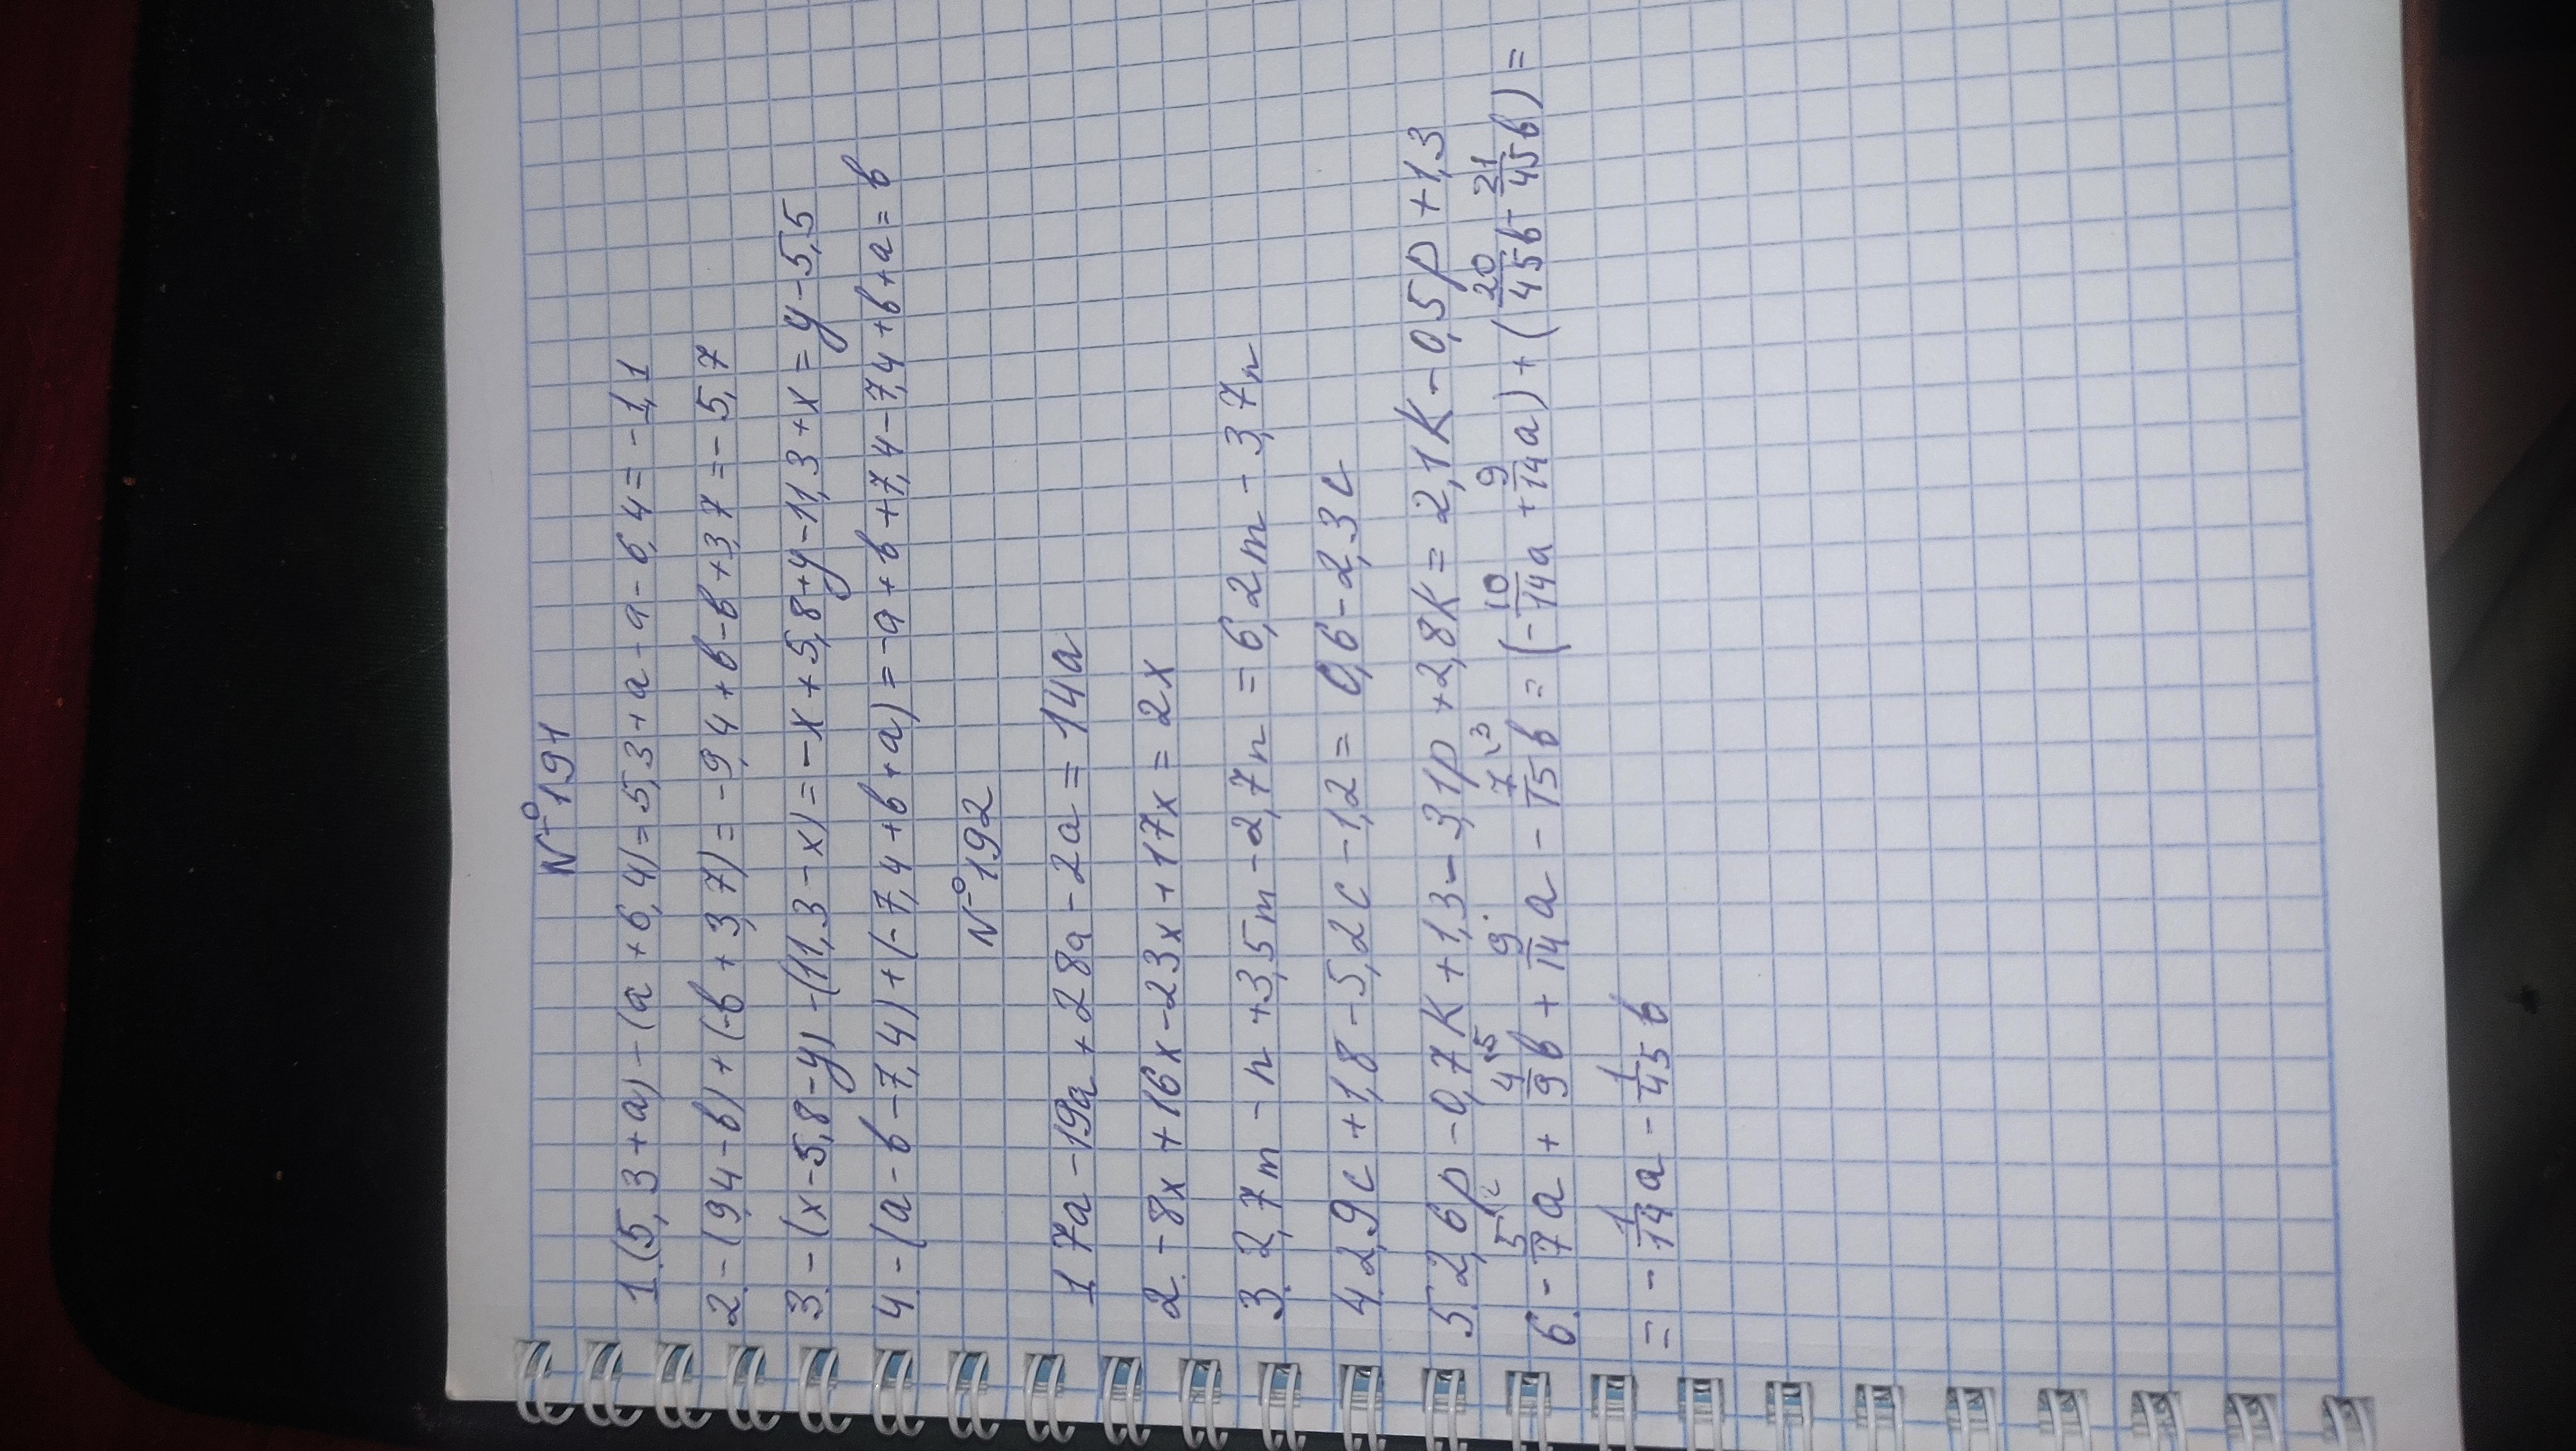 №191
1.(5,3+a)-(a+6,4)=5,3+a-a-6,4=-1,1
2.-(9,4-b)+(-b+3,7)=-9,4+b-b+3,7=-5,7
3.-(x-5,8-y)-(11,3-x)=-x+5,8+y-11,3+x=y-5,5
4.-(a-b-7,4)+(-7,4+b+a)=-a+b+7,4-7,4+b+a=b
№192
1.7a-19a+28a-2a=14a
2.-8x+16x-23x+17x=2x
3.2,7m-n+3,5m-2,7n=6,2m-3,7n
4.2,9c+1,8-5,2c-1,2=0,6-2,3c
5.2,6p-0,7k+1,3-3,1p+2,8k=2,1k-0,5p+1,3
6.-5/7a+4/9b+9/14a-7/15b=(-10/14a+9/14a)+(20/45b-21/45b)=
=-1/14a-1/45b